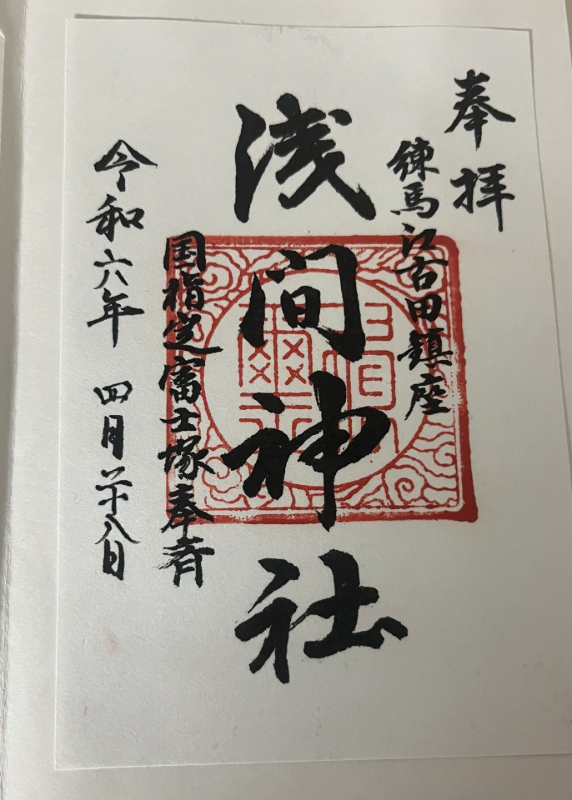 奉拝
練馬江古田鎮座
浅間神社
国指定富士塚奉斎
令和六年 四月廿八日